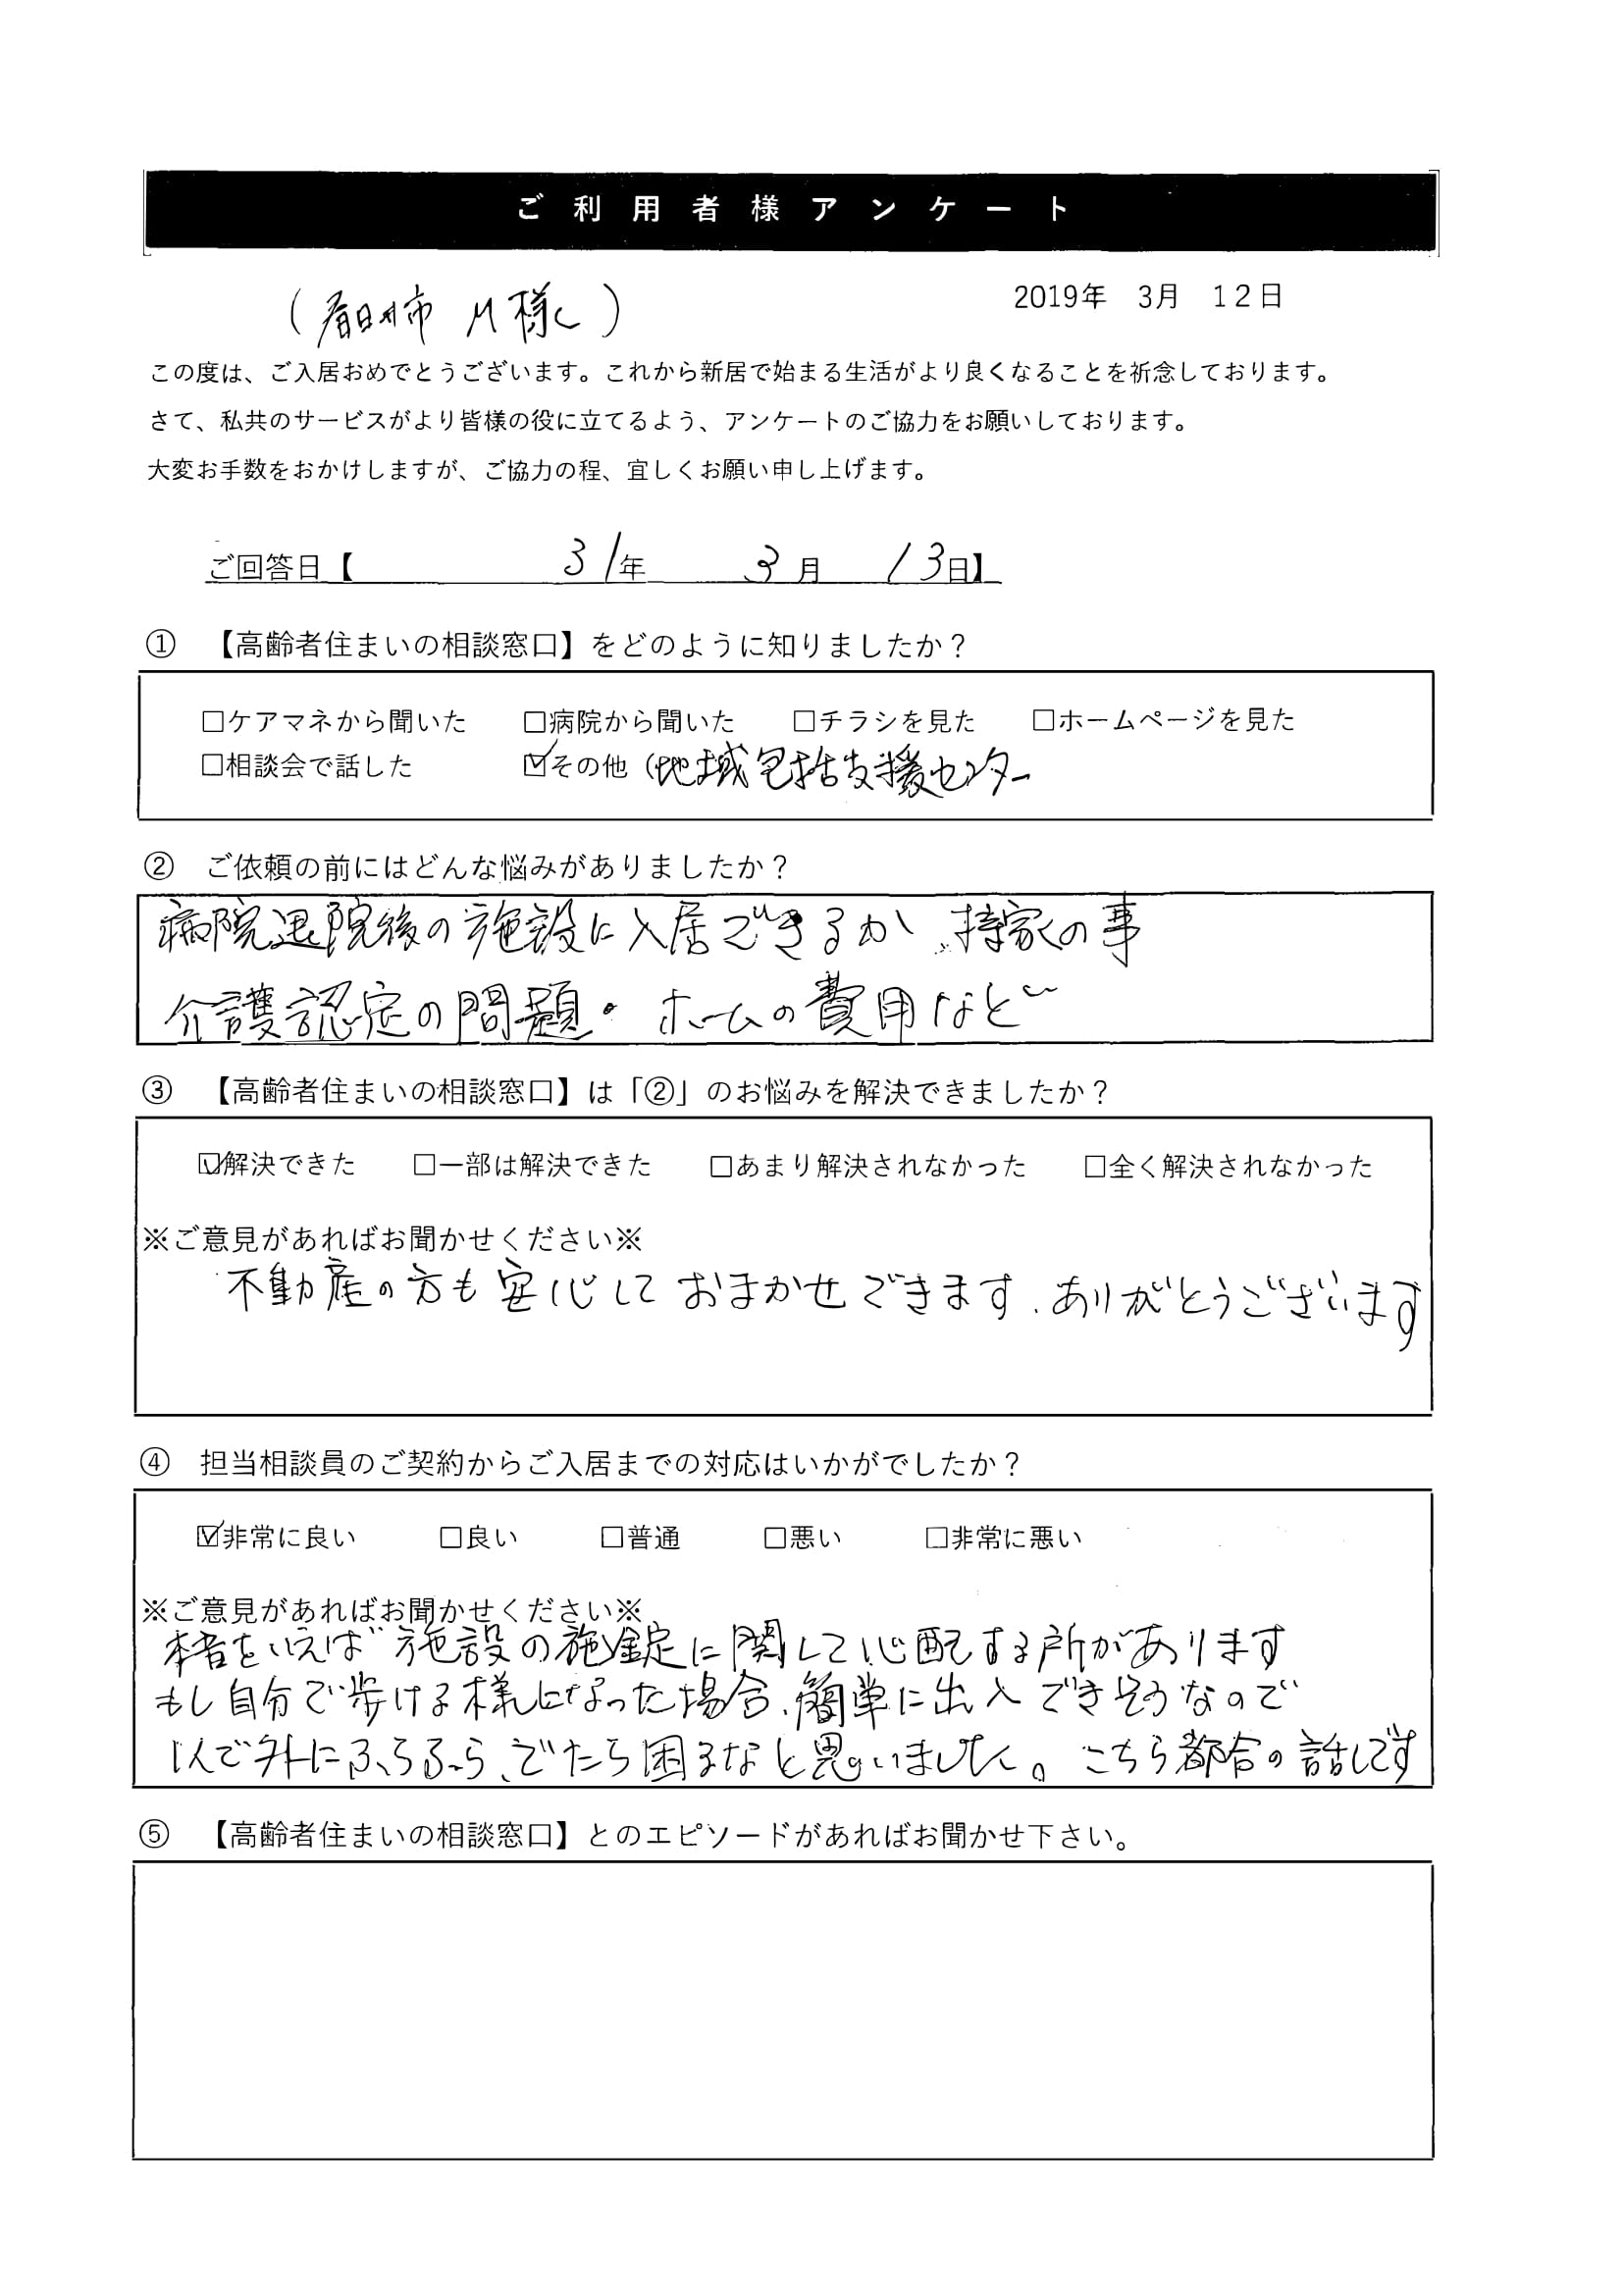 ご利用者様アンケート
(春日井市 M様)
2019年 3月 12日
この度は、ご入居おめでとうございます。これから新居で始まる生活がより良くなることを祈念しております。
さて、私共のサービスがより皆様の役に立てるよう、アンケートのご協力をお願いしております。
大変お手数をおかけしますが、ご協力の程、宜しくお願い申し上げます。
ご回答日【 31年 3月 13日】
① 【高齢者住まいの相談窓口】をどのように知りましたか?
□ケアマネから聞いた □病院から聞いた □チラシを見た □ホームページを見た
□相談会で話した ☑その他(地域包括支援センター
② ご依頼の前にはどんな悩みがありましたか?
病院退院後の施設に入居できるか、持家の事
介護認定の問題。ホームの費用など
③ 【高齢者住まいの相談窓口】は「②」のお悩みを解決できましたか?
☑解決できた □一部は解決できた □あまり解決されなかった □全く解決されなかった
※ご意見があればお聞かせください※
不動産の方も安心しておまかせできます、ありがとうございます
④ 担当相談員のご契約からご入居までの対応はいかがでしたか?
☑非常に良い □良い □普通 □悪い □非常に悪い
※ご意見があればお聞かせください※
本音をいえば施設の施錠に関して心配する所があります
もし自分で歩ける様になった場合、簡単に出入できそうなので
1人で外にふらふら、でたら困るなと思いました。こちら都合の話しです
⑤ 【高齢者住まいの相談窓口】とのエピソードがあればお聞かせ下さい。